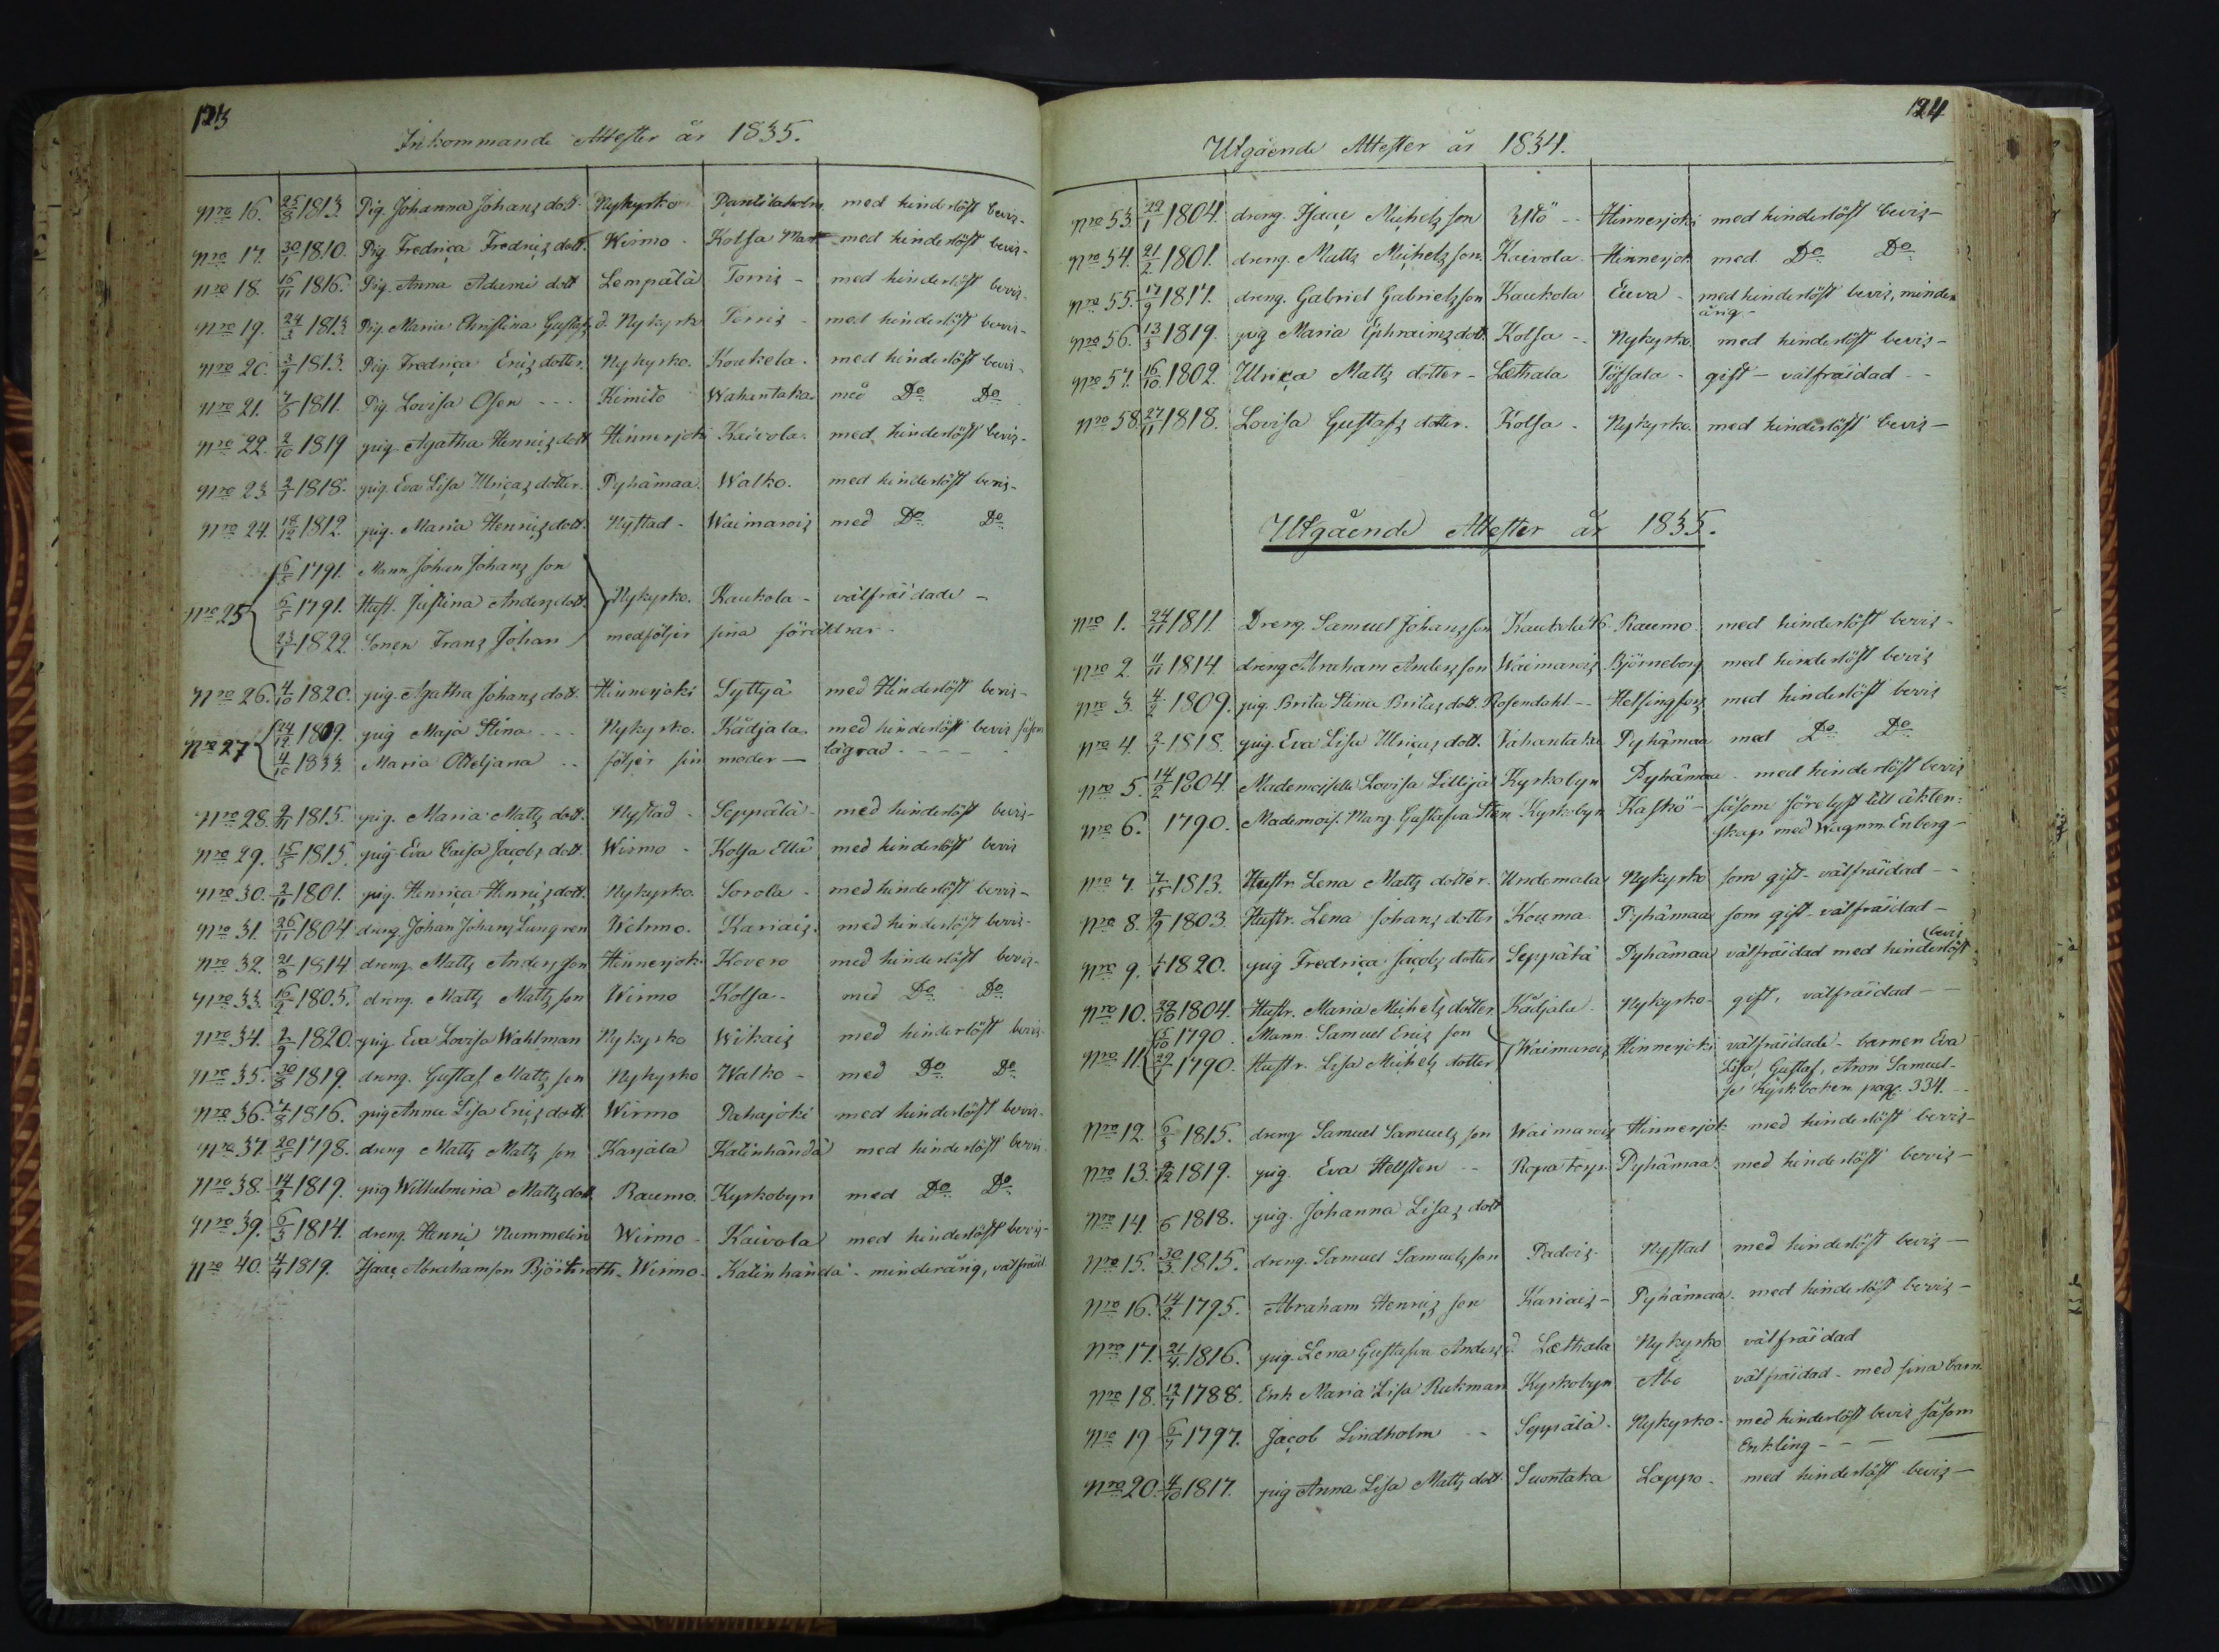 123
Inkommande Attester år 1835.
Nro 16. 25/8 1813. Pig. Johanna Johans dott. Nykyrko Pantilaholm med hinderlöst bevis-
Nro 17. 30/1 1810. Pig Fredrica Fredrics dott. Wirmo - Kolsa med hinderlöst bevis-
Nro 18. 16/11 1816. Pig. Anna Adami dott Lempälä Torris - med hinderlöst bevis-
Nro 19. 24/3 1813 Pig. Maria Christina Gustafs d. Nykyrko Torris - med hinderlöst bevis-
Nro 20. 3/1 1813. Pig. Fredrica Erics dotter. Nykyrko. Koukela - med hinderlöst bevis
Nro 21. 7/8 1811. Pig. Lovisa Osen - - - Kimito Wahantaka med Do Do
Nro 22. 2/10 1819 pig. Agatha Henrics dott Hinnerjoki Kaivola. med hinderlöst bevis-
Nro 23 2/1 1818. pig. Eva Lisa Ulricas dotter. Pyhämaa. Walko. med hinderlöst bevis-
Nro 24. 18/12 1812. pig. Maria Henrics dott. Nystad - Waimarois med Do Do
6/5 1791. Mann Johan Johans son
Nro 25 6/5 1791. Hust. Justina Anders dott. Nykyrko. Kaukola - välfräidade -
23/1 1822. Sonen Frans Johan medföljer sina föräldrar -
Nro 26. 4/10 1820. pig. Agatha Johans dott. Hinnerjoki Syttyä med Hinderlöst bevis-
Nro 27 24/12 1809. pig Maja Stina - - - Nykyrko. Kådjala. med hinderlöst bevis såsom
4/10 1833. Maria - - följer sin moder — lägrad - - - -
Nro 28. 2/11 1815. pig. Maria Matts dott. Nystad - Seppälä - med hinderlöst bevis-
Nro 29. 15/5 1815. pig. Eva Caisa Jacobs dott. Wirmo - Kolsa Ellä med hinderlöst bevis
Nro 30. 2/11 1801. pig. Henrica Henrics dott. Nykyrko. Sorola - med hinderlöst bevis-
Nro 31. 26/11 1804 dreng. Johan Johans Lungren Wehmo. Kariais. med hinderlöst bevis-
Nro 32. 21/8 1814 dreng. Matts Anders son Hinnerjoki Kovero med hinderlöst bevis-
Nro 33. 16/2 1805. dreng. Matts Matts son Wirmo Kolsa - med Do Do
Nro 34. 2/9 1820. pig Eva Lovisa Wahlman Nykyrko Wikais med hinderlöst bevis-
Nro 35. 30/8 1819. dreng. Gustaf Matts son Nykyrko Walko - med Do Do
Nro 36. 7/8 1816. pig Anna Lisa Erics dott. Wirmo Pahajoki med hinderlöst bevis-
Nro 37. 20/5 1798. dreng Matts Matts son Karjala Katinhändä med hinderlöst bevis
Nro 38. 14/2 1819. pig Wilhelmina Matts dott Raumo. Kyrkobyn med Do Do
Nro 39. 6/3 1814. dreng. Henric Nummelin Wirmo - Kaivola med hinderlöst bevis-
Nro 40. 4/4 1819. Isaac Abrahamson Björkroth. Wirmo. Katinhändä - minderäng, välfräid.
124
Utgående Attester år 1834.
Nro 53. 22/1 1804. dreng. Isaac Michels son Ylö - - Hinnerjoki med hinderlöst bevis-
Nro 54. 21/2 1801. dreng. Matts Michels son. Kaivola. Hinnerjok med Do Do
Nro 55. 17/9 1817. dreng. Gabriel Gabrielsson Kaukola Euva - med hinderlöst bevis, minder
äng -
Nro 56. 13/5 1819. pig Maria Ephraims dott. Kolsa - - Nykyrko med hinderlöst bevis-
Nro 57. 16/10 1802. Ulrica Matts dotter - Læthala Töfsala - gift - välfräidad - -
Nro 58. 27/11 1818. Lovisa Gustafs dotter. Kolsa - Nykyrko. med hinderlöst bevis-
Utgående Attester år 1835.
Nro 1. 24/11 1811. Dreng. Samuel Johansson Raumo. med hinderlöst bevis-
Nro 2. 11/11 1814. dreng Abraham Anders son Waimarois Björneborg med hinderlöst bevis
Nro 3. 4/2 1809. pig. Brita Stina Britas dott. Rosendahl - - Helsingfors med hinderlöst bevis
Nro 4. 2/1 1818. pig. Eva Lisa Ulricas dott. Vahantaka Pyhämaa med Do Do
Nro 5. 14/2 1804. Mademoiselle Lovisa Lillija Kyrkobyn Pyhämaa - med hinderlöst bevis
Nro 6. 1790. Mademois. Marg. Gustafva Sten Kyrkobyn Kaskö - såsom förelyst till äkten:
skap med Wagnm. Enberg -
Nro 7. 7/15 1813. Hustr. Lena Matts dotter. Undemala Nykyrko som gift - välfräidad - -
Nro 8. 1803. Hustr. Lena Johans dotter Kouma Pyhämaa som gift välfräidad -
bevis
Nro 9. 1820. pig Fredrica Jacobs dotter Seppälä Pyhämaa välfräidad med hinderlöst
Nro 10. 29/10 1804. Hustr. Maria Michels dotter Kådjala Nykyrko - gift, välfräidad - -
15/10 1790. Mann. Samuel Erics son
Nro 11. 29/1 1790. Hustr. Lisa Michels dotter Waimarois Hinnerjoki välfräidade - barnen Eva
Lisa, Gustaf, Aron Samuel -
se Kyrkboken pag. 334.
Nro 12. 6/5 1815. dreng Samuel Samuels son Waimarois Hinnerjok. med hinderlöst bevis-
Nro 13. 1819. pig. Eva Hellsten - - Ropa torp. Pyhämaa. med hinderlöst bevis-
Nro 14. 6 1818. pig. Johanna Lisas dott
Nro 15. 30/3 1815. dreng. Samuel Samuelsson Padois - Nystad med hinderlöst bevis-
Nro 16. 14/2 1795. Abraham Henrics son Kariais - Pyhämaa. med hinderlöst bevis-
Nro 17. 21/4 1816. pig. Lena Gustafva Anders d. Læthala Nykyrko välfräidad
Nro 18. 12/7 1788. Enk Maria Lisa Rukman Kyrkobyn Åbo välfräidad - med sina barn.
Nro 19 6/7 1797. Jacob Lindholm - - Seppälä - Nykyrko - med hinderlöst bevis såsom
Enkling - - -
Nro 20. 4/10 1817. pig Anna Lisa Matts dott. Suontaka Lappo - med hinderlöst bevis-